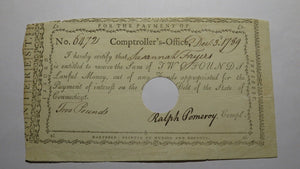 FOR THE PAYMENT OF
No. 6472 Comptroller's-Office, Dec. 3, 1789
I hereby certify that Susannah Fryers
is entitled to receive the Sum of TWO POUNDS
Lawful Money, out of any Funds appropriated for the
Payment of interest on the Debt of the State of
Connecticut.
Two Pounds
Ralph Pomeroy, Compt.
HARTFORD: PRINTED BY HUDSON AND GOODWIN.